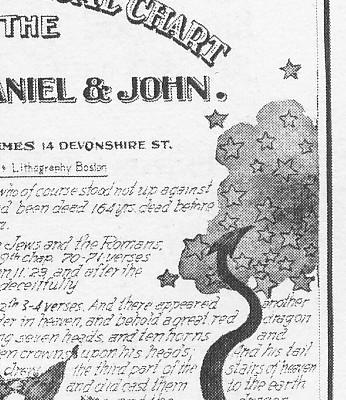 CHART
THE
ANIEL & JOHN.
14 DEVONSHIRE ST.
Lithography Boston
who of course stood not up against
been dead 164 yrs. dead before
Jews and the Romans,
9th chap. 70-71 verses
11. 23, and after the
deceitfully
3-4 verses. And there appeared another
in heaven, and behold a great red dragon
seven heads, and ten horns and
crowns upon his heads; And his tail
drew the third part of the stars of heaven
and did cast them to the earth
and the dragon